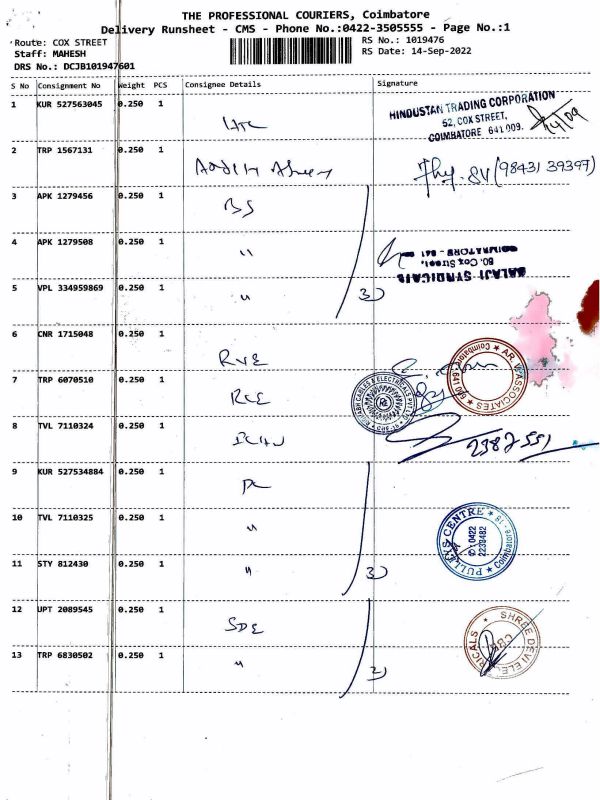 THE PROFESSIONAL COURIERS, Coimbatore
Delivery Runsheet - CMS - Phone No.:0422-3505555 - Page No.:1
Route: COX STREET
RS No.: 1019476
Staff: MAHESH
RS Date: 14-Sep-2022
DRS No.: DCJB101947601
S No Consignment No Weight PCS Consignee Details Signature
1 KUR 527563045 0.250 1 HTC
HINDUSTAN TRADING CORPORATION
52, COX STREET,
COIMBATORE 641 009.
2 TRP 1567131 0.250 1
(98431 39397)
3 APK 1279456 0.250 1 BS
4 APK 1279508 0.250 1 "
BALAJI SYNDICATE
80, Cox Street,
COIMBATORE - 641
5 VPL 334959869 0.250 1 " 3)
6 CNR 1715048 0.250 1 RVE
AR. V. ASSOCIATES ★ Coimbatore 641
7 TRP 6070510 0.250 1 RCE
RISHABH CABLES & ELECTRICALS PVT LTD
8 TVL 7110324 0.250 1
2387551
9 KUR 527534884 0.250 1 PC
10 TVL 7110325 0.250 1 "
PULLEYS CENTRE ★ Coimbatore - 18
✆: 0422
2239482
11 STY 812430 0.250 1 " 3)
12 UPT 2089545 0.250 1 SDE
SHREE DEVI ELECTRICALS
13 TRP 6830502 0.250 1 " 2)